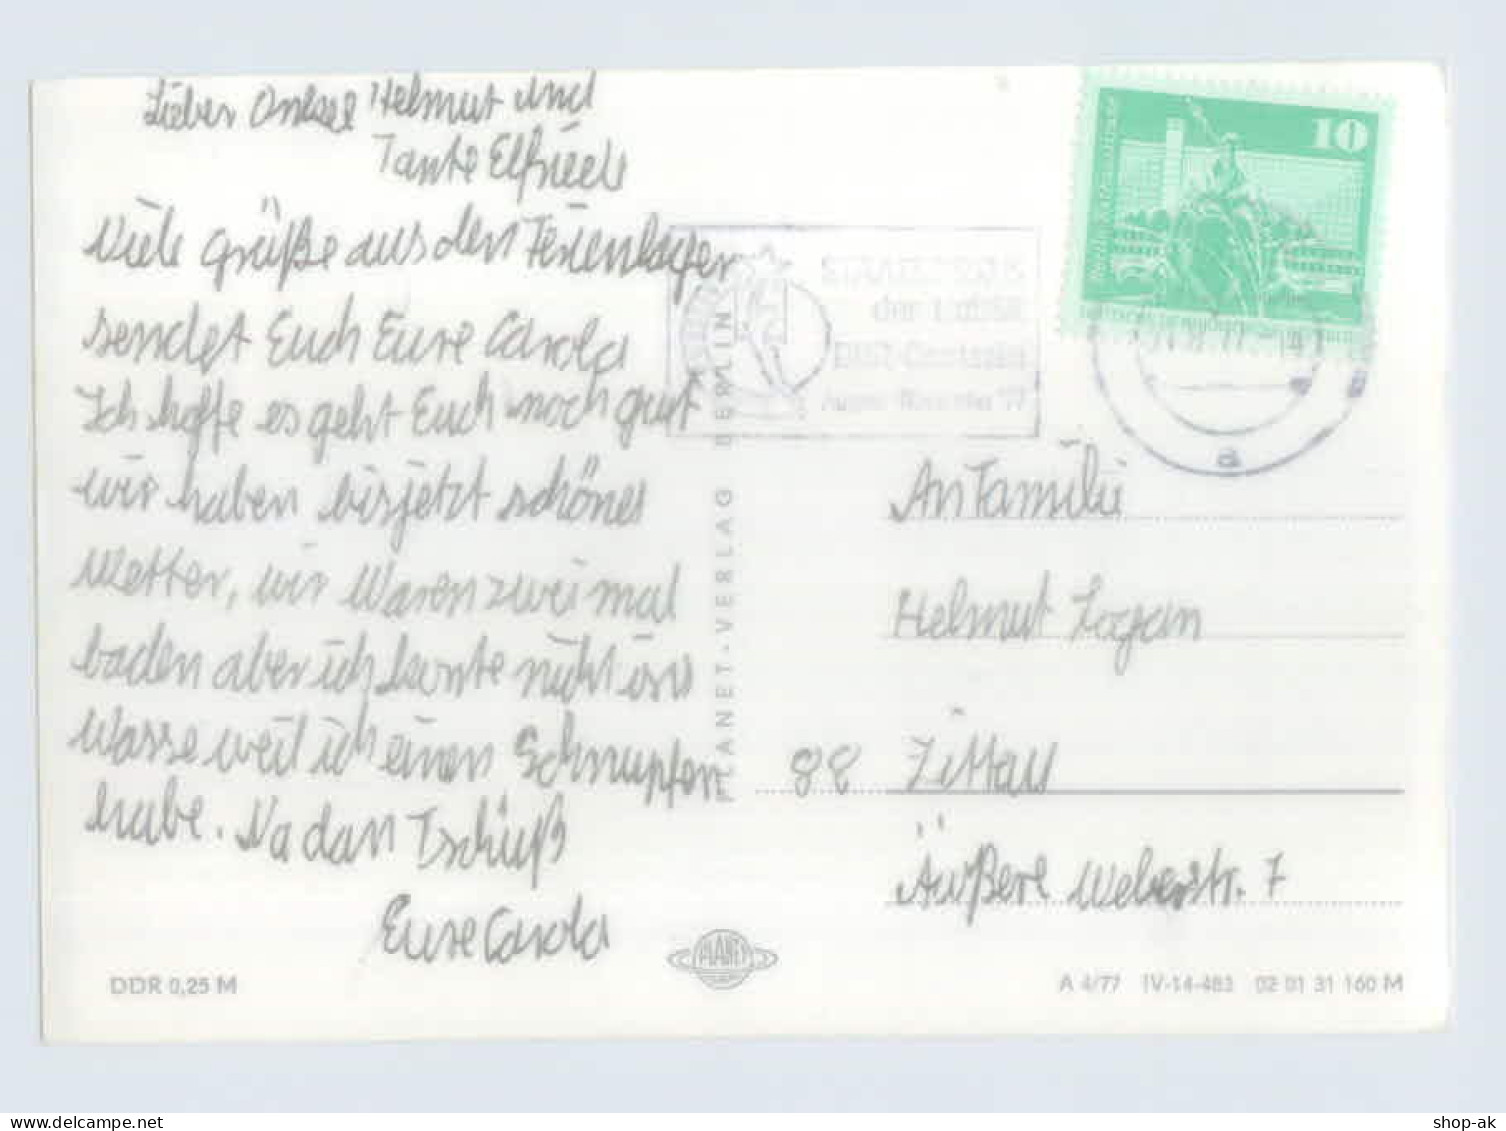 Lieber Onkel Helmut und
Tante Elfriede
Viele Grüße aus den Ferienlager
sendet Euch Eure Carola
Ich hoffe es geht Euch noch gut
wir haben bis jetzt schönes
Wetter, wir Waren zwei mal
baden aber ich konnte nicht ins
Wasse weil ich einen Schnupfen
habe. Na dan Tschüß
Eure Carola
DDR 0,25 M
PLANET-VERLAG BERLIN
PLANET
10
der
DDR
77
a
An Familie
Helmut Logan
88 Zittau
Äußere Weberstr. 7
A 4/77 IV-14-483 02 01 31 160 M
shop-ak